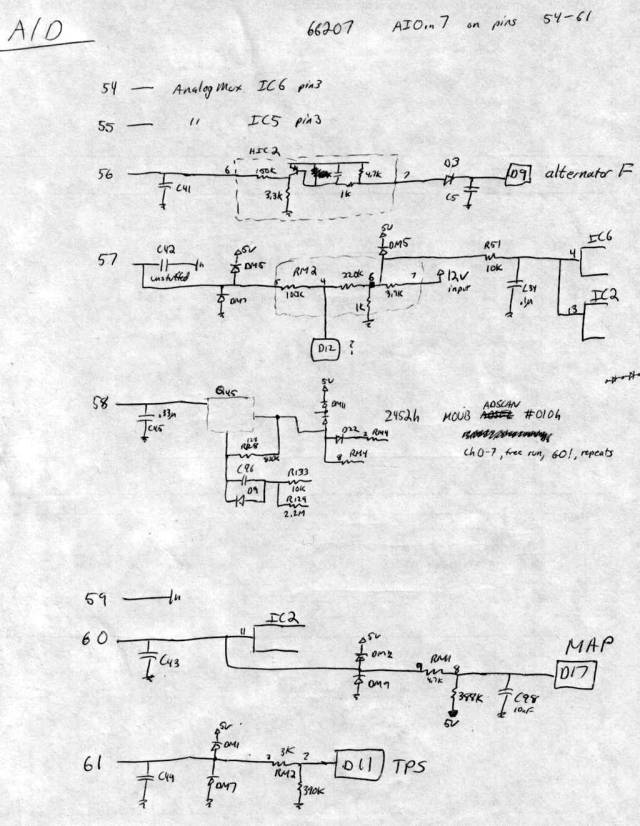 A/D
66207 AI0..7 on pins 54-61
54 — Analog Mux IC6 pin3
55 — " IC5 pin3
HIC2
56 C41 6 50K 3.3K 1K 4.7K 7 D3 C5 D9 alternator F
57 C42 unstuffed 5V DM5 DM7 5 RM2 4 220K 6 1K 7 12V input
5V DM5 R51 10K C34 .1µ 4 IC6
13 IC2
D12 ?
58 .33µ C45 Q45 5V DM11 D22 2 RM4 8 RM4
2452h MOVB ADSCAN #010h
ch 0-7, free run, GO!, repeats
C96 D9 R133 10K
R129 2.2M
59
60 C43 11 IC2
5V DM2 DM9 9 RM1 4.7K 8 388K 5V C98 10nF D17 MAP
61 C44 5V DM1 DM7 3K RM2 2 390K D11 TPS